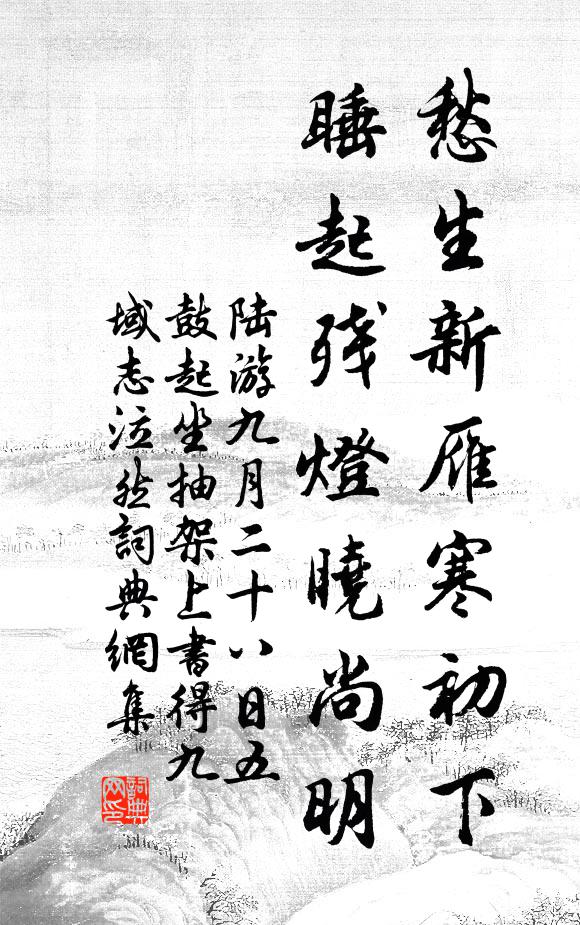 愁生新雁寒初下
睡起残燈曉尚明
陆游九月二十八日五
鼓起坐抽架上書得九
域志泣然詞典網集
詞典网印